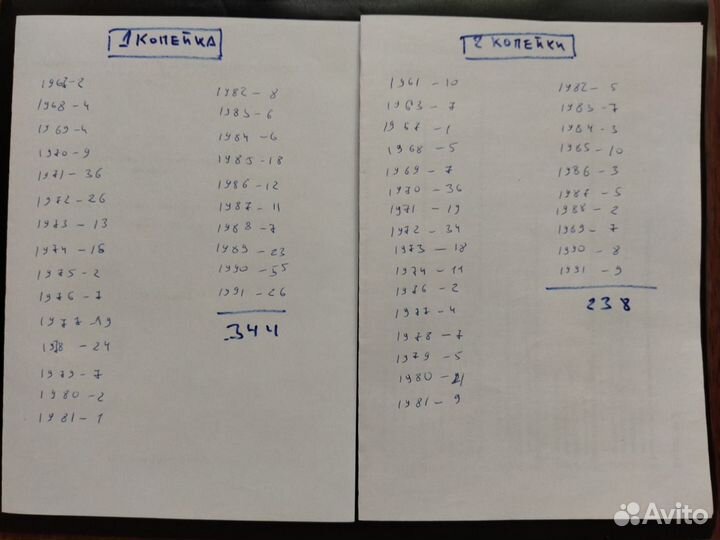 1 КОПЕЙКА
1967-2
1968-4
1969-4
1970-9
1971-36
1972-26
1973-13
1974-15
1975-2
1976-7
1977-19
1978-24
1979-7
1980-2
1981-1
1982-8
1983-6
1984-6
1985-18
1986-12
1987-11
1988-7
1989-23
1990-55
1991-26
344
2 КОПЕЙКИ
1961-10
1963-7
1967-1
1968-5
1969-7
1970-36
1971-19
1972-34
1973-18
1974-11
1976-2
1977-4
1978-7
1979-5
1980-
1981-9
1982-5
1983-7
1984-3
1985-10
1986-3
1987-5
1988-2
1989-7
1990-8
1991-9
238
Avito